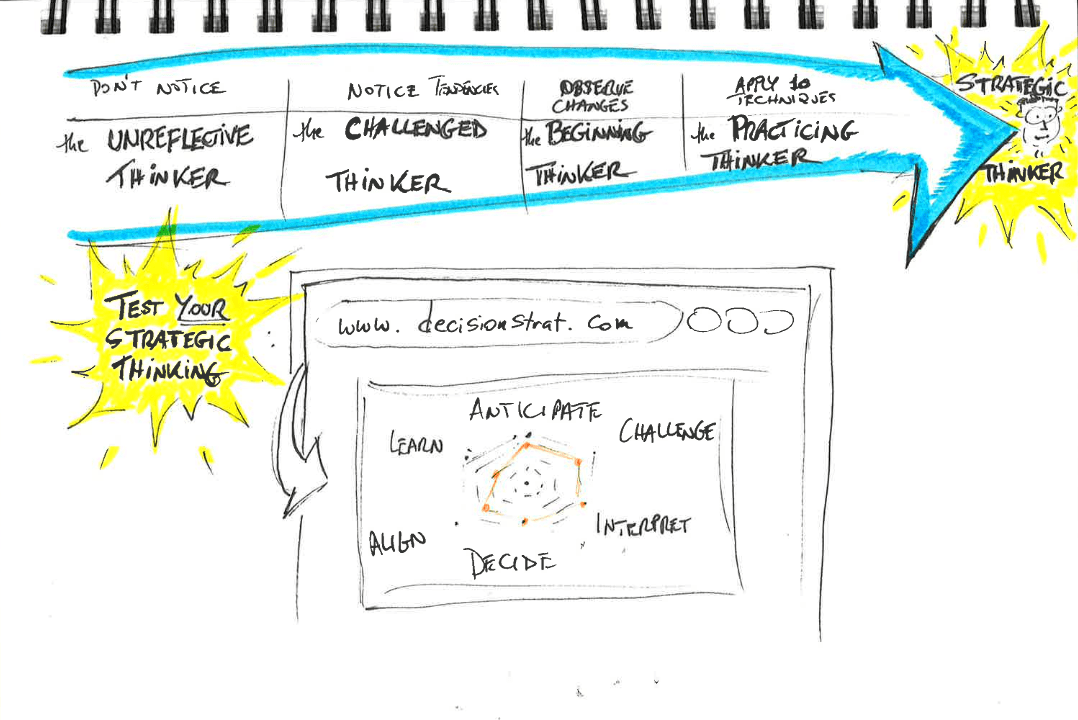 DON'T NOTICE
NOTICE TENDENCIES
OBSERVE
CHANGES
APPLY to
TECHNIQUES
the UNREFLECTIVE
THINKER
the CHALLENGED
THINKER
the BEGINNING
THINKER
the PRACTICING
THINKER
STRATEGIC
THINKER
TEST YOUR
STRATEGIC
THINKING
www.decisionstrat.com
ANTICIPATE
LEARN
CHALLENGE
ALIGN
INTERPRET
DECIDE